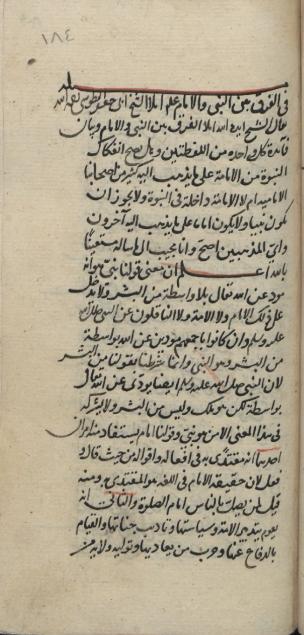 ١٨٤
في الفرق بين النبي والامام علم املاء الشيخ ابي جعفر الطوسي
قال الشيخ ايده الله املا الفرق بين النبي والامام وبيان
فائدة كل واحده من اللفظتين وهل يصح انفكاك
النبوة من الامامة على ما يذهب اليه كثير من اصحابنا
الاماميه ام لا الامامة داخلة في النبوة ولا يجوز ان
يكون نبيا ولا يكون اماما على ما يذهب اليه آخرون
واي المذهبين اصح وانا مجيب الى ما ساله مستعينا
بالله اعلم ان معنى قولنا نبي هو انه
مود عن الله تعالى بلا واسطة من البشر ولا يدخل
على ذلك الامام ولا الامة ولا الناقلون عن النبي صلى الله
عليه وسلم وان كانوا باجمعهم مودين عن الله بواسطة
من البشر وهو النبي وانما شرطنا بقولنا من البشر
لان النبي صلى الله عليه وسلم ايضا يودي عن الله تعالى
بواسطة لكن هو ملك وليس من البشر ولا يشركه
في هذا المعنى الا من هو نبي وقولنا امام يستفاد منه امران
احدهما انه مقتدى به في افعاله واقواله من حيث قال و
فعل لان حقيقة الامام في اللغه هو المقتدى به ومنه
قيل لمن يصلي بالناس امام الصلوة والثاني انه
يقوم بتدبير الامة وسياستها وتاديب جناتها والقيام
بالدفاع عنها وحرب من يعاديها وتوليه ولاية من